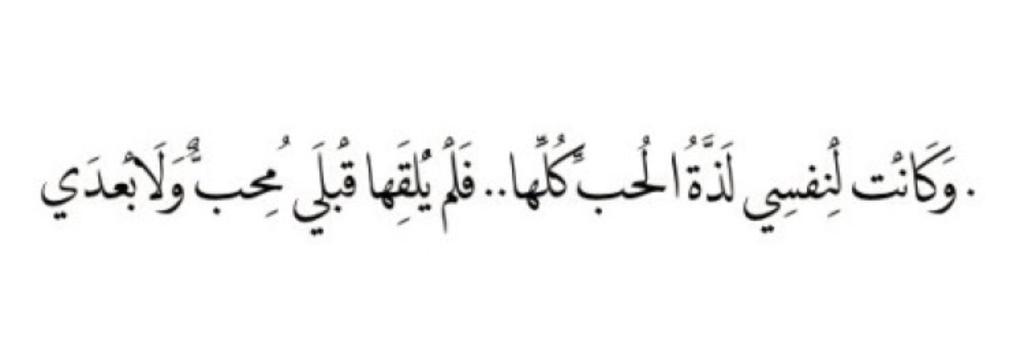 . وَكَانْت لْنِفسِي لَذَّةُ الْحُب كُلِّها.. فَلَمْ يْلقِها قبْلَي مُحِبٌّ وَلَا بْعدَي